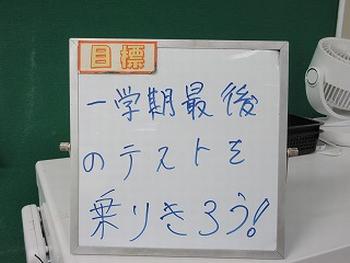 目標
一学期最後
のテストを
乗りきろう!